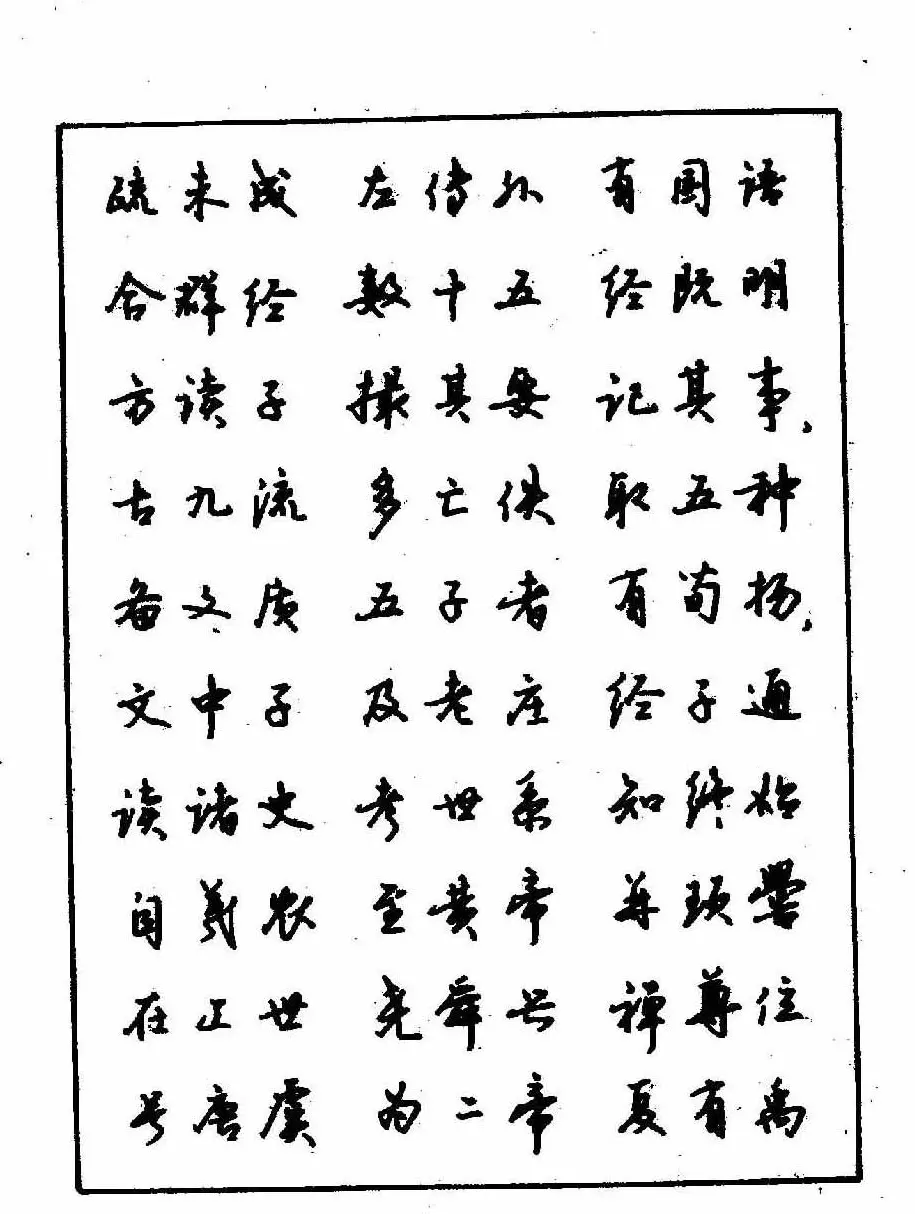 疏未成 左传外 有国语
合群经 数十五 经既明
方读子 撮其要 记其事、
古九流 多亡佚 取五种
备文质 五子者 有荀扬、
文中子 及老庄 经子通
读诸史 考世系 知终始
自羲农 至黄帝 并顼喾
在上世 尧舜兴 禅尊位
号唐虞 为二帝 夏有禹